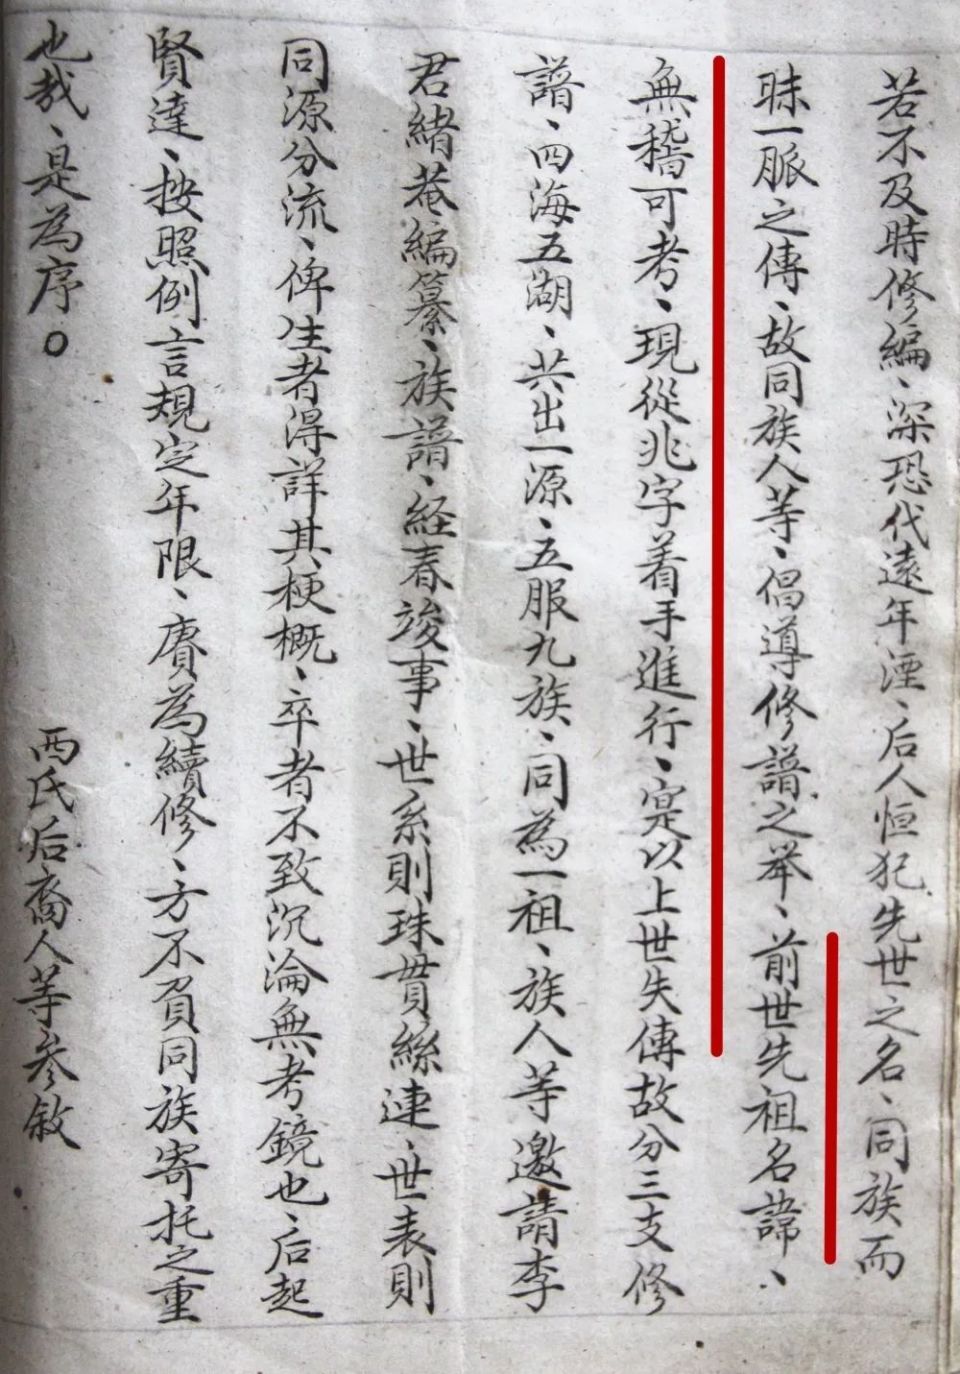 若不及時修編、深恐代遠年湮、后人恒犯先世之名、同族而
昧一脈之傳、故同族人等、倡導修譜之举、前世先祖名諱、
無稽可考、現從兆字着手進行、寔以上世失傳故分三支修
譜、四海五湖、共出一源、五服九族、同為一祖、族人等邀請李
君緒菴編纂、族譜、経春竣事、世系則珠貫絲連、世表則
同源分流、俾生者得詳其梗概、卒者不致沉淪無考鏡也、后起
賢達、按照例言規定年限、賡為續修、方不負同族寄托之重
也哉、是為序。
西氏后裔人等參敘